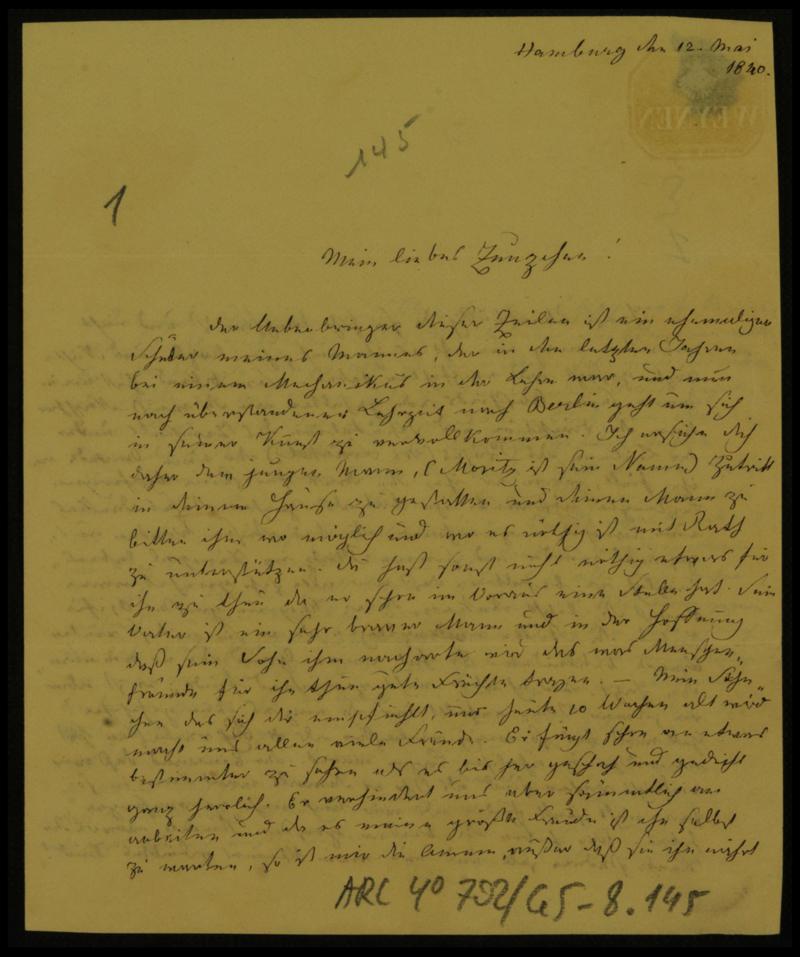 Hamburg den 12. Mai
1840.
WEYNEN
145
1
Mein liebes Zunzchen!
der Ueberbringer dieser Zeilen ist ein ehemaliger
Schüler meines Mannes, der in den letzten Jahren
bei einem Mechanikus in der Lehre war, und nun
nach überstandener Lehrzeit nach Berlin geht um sich
in seiner Kunst zu vervollkommnen. Ich ersuche dich
daher dem jungen Mann, (Moritz ist sein Name) Zutritt
in deinem Hause zu gestatten und deinen Mann zu
bitten ihn wo möglich und wo es nöthig ist mit Rath
zu unterstützen. du hast sonst nicht nöthig etwas für
ihn zu thun da er schon im Voraus eine Stelle hat. Sein
Vater ist ein sehr braver Mann und in der Hoffnung
daß sein Sohn ihm nacharte wird das was Menschen-
freunde für ihn thun gute Früchte tragen. — Mein Söhn-
chen das sich dir empfiehlt, uns heute 10 Wochen alt wird
macht uns allen viele Freude. Er fängt schon an etwas
bestimmter zu sehen als es bis her geschah und gedeiht
ganz herrlich. Er verhindert uns aber sämmtlich am
arbeiten und da es meine größte Freude ist ihn selbst
zu warten, so ist mir die Amme, außer daß sie ihn nährt
ARC 4° 792/G5-8.145